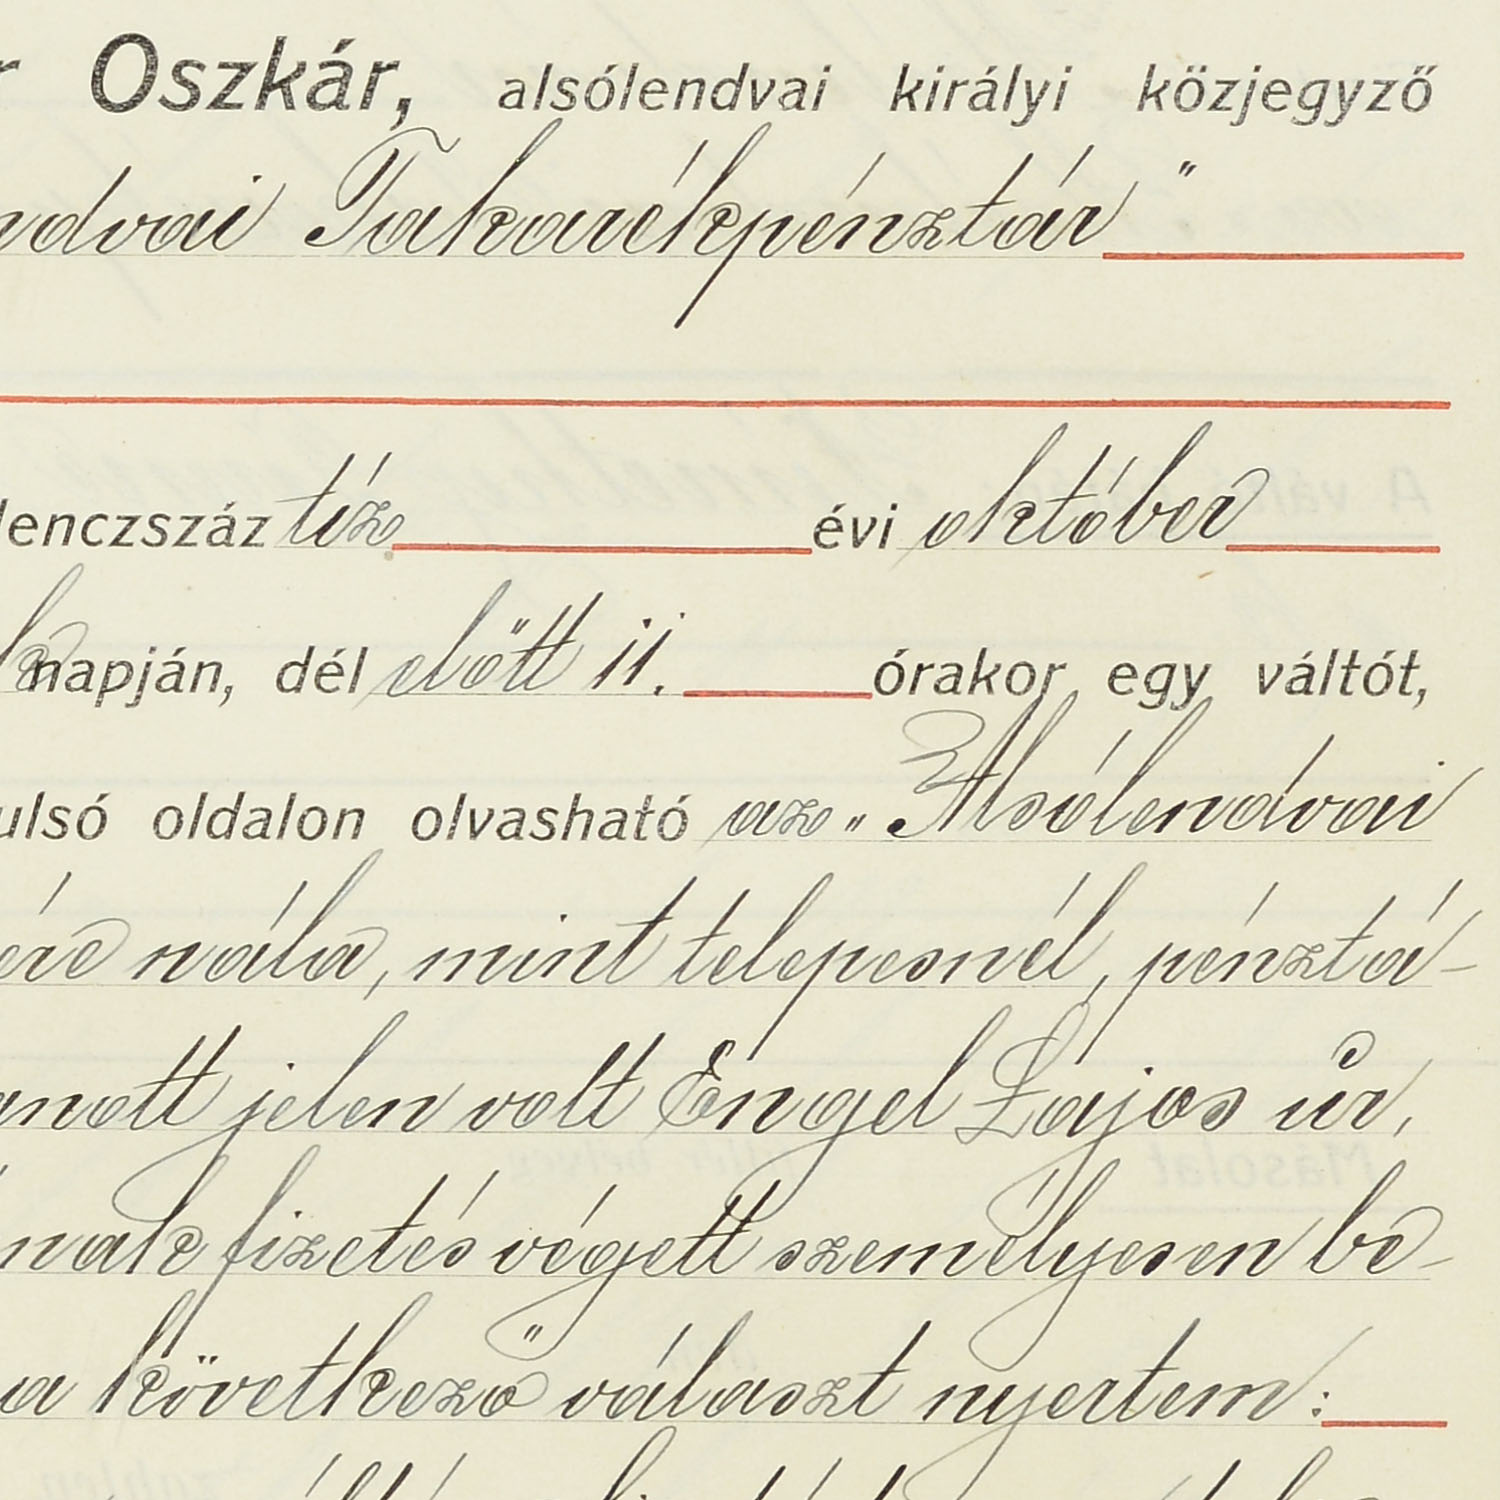 r Oszkár, alsólendvai királyi közjegyző
ndvai Takarékpénztár"
lenczszáz tíz évi október
napján, dél előtt 11. órakor egy váltót,
ulsó oldalon olvasható az „Alsólendvai
ére nála, mint telepesnél, pénztá-
anott jelen volt Engel Lajos úr,
nak fizetés végett személyesen be-
a következő választ nyertem: